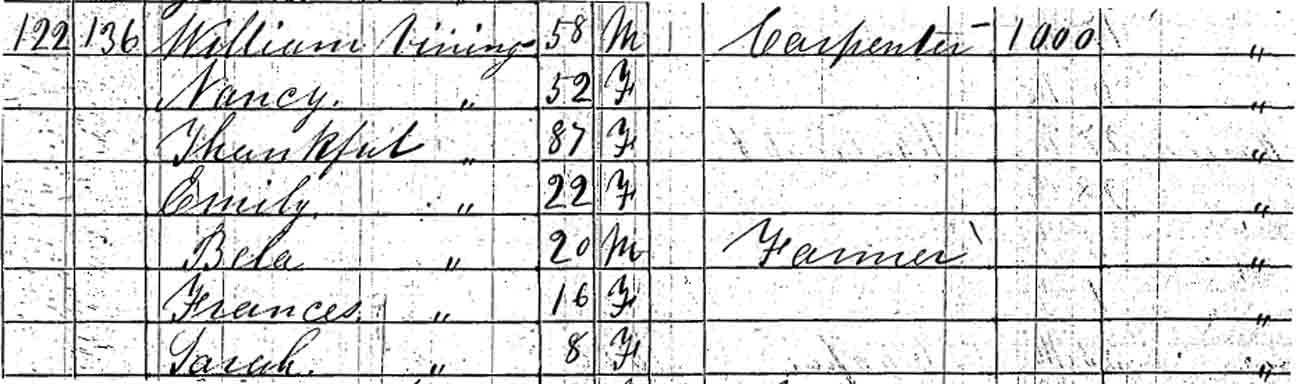 122 136 William Vining 58 M Carpenter 1000 "
Nancy " 52 F "
Thankful " 87 F "
Emily " 22 F "
Bela " 20 M Farmer "
Frances " 16 F "
Sarah " 8 F "